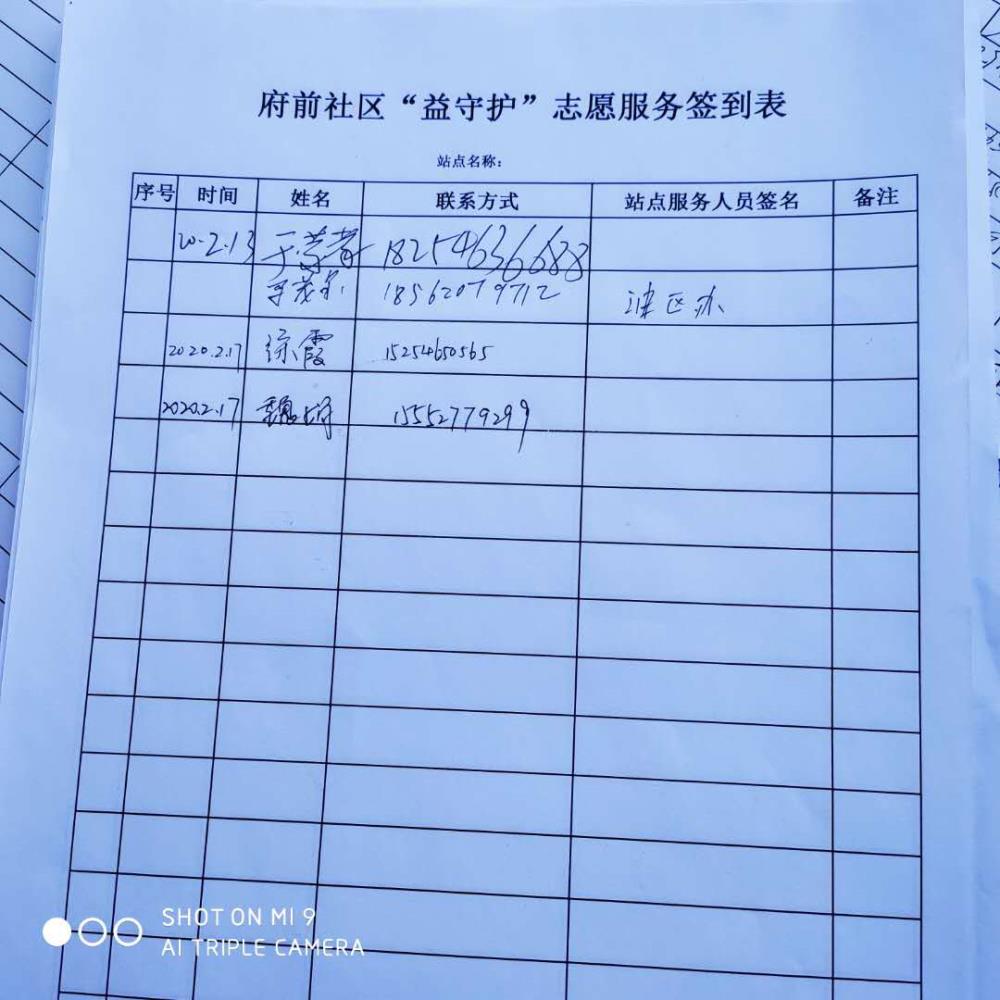 府前社区“益守护”志愿服务签到表
站点名称：
序号 时间 姓名 联系方式 站点服务人员签名 备注
20.2.13 18254636688
18562079712 建区办
2020.2.17 徐霞 15254650565
2020.2.17 魏 15552779299
SHOT ON MI 9
AI TRIPLE CAMERA